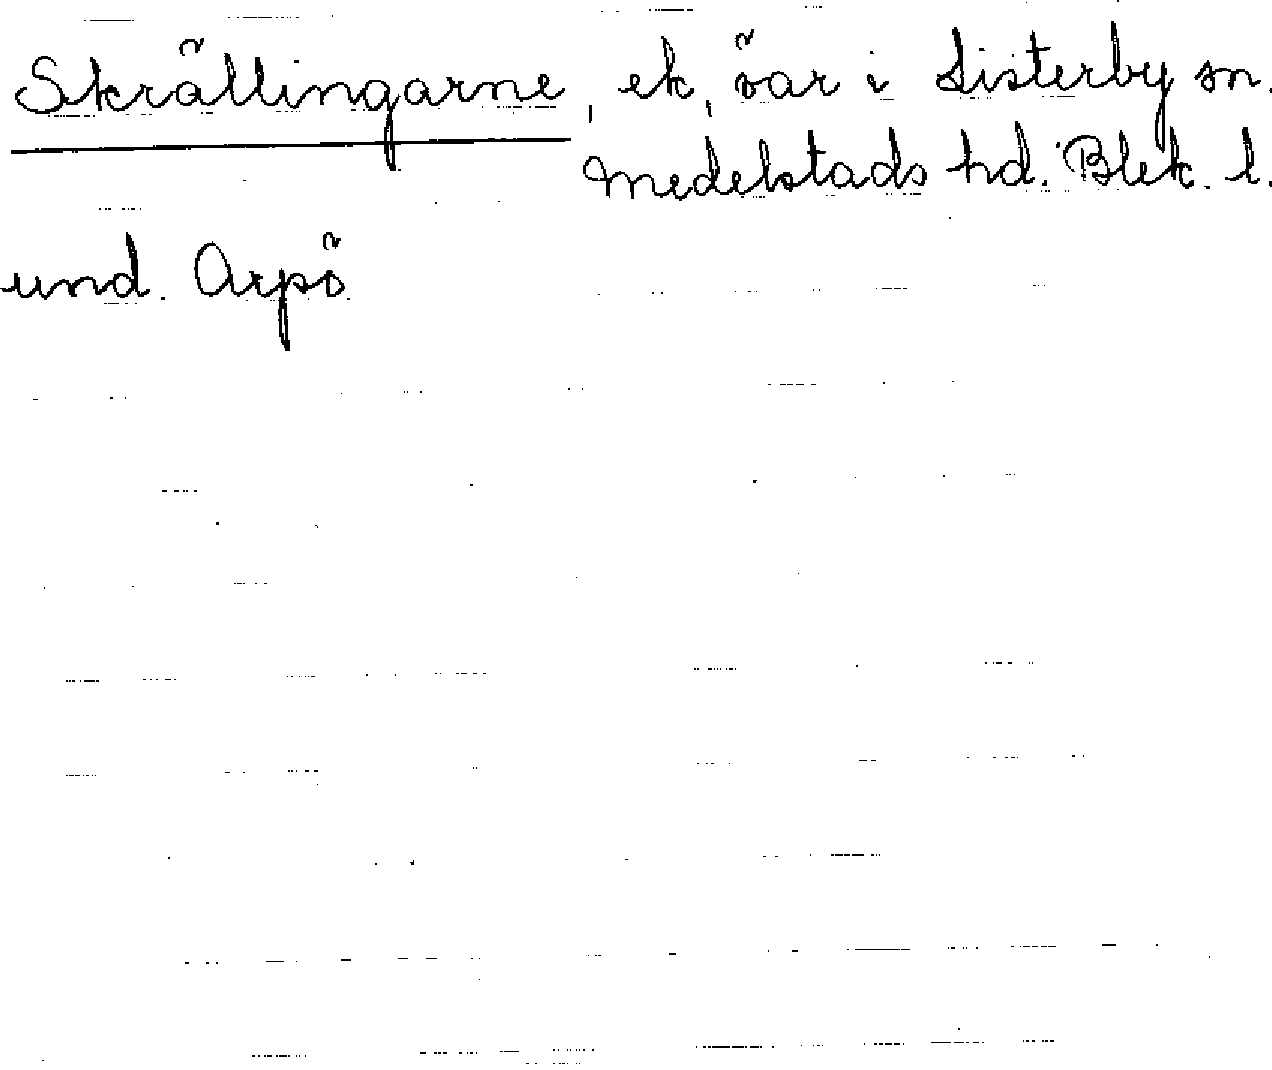 Skrällingarne, ek, öar i Listerby sn.
Medelstads hd. Blek. l.
und. Arpö